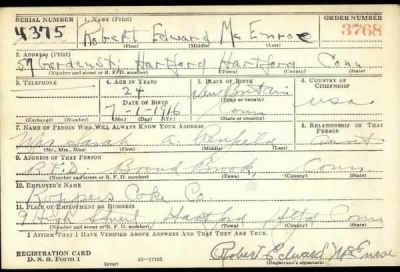 SERIAL NUMBER 1. NAME (Print) ORDER NUMBER
4375 Robert Edward McEnroe 3768
(First) (Middle) (Last)
2. ADDRESS (Print)
57 Garden St. Hartford Hartford Conn
(Number and street or R. F. D. number) (Town) (County) (State)
3. TELEPHONE 4. AGE IN YEARS 5. PLACE OF BIRTH 6. COUNTRY OF CITIZENSHIP
24 New Britain
DATE OF BIRTH (Town or county) USA
7-1-1916 Conn
(Exchange) (Number) (Mo.) (Day) (Yr.) (State or country)
7. NAME OF PERSON WHO WILL ALWAYS KNOW YOUR ADDRESS 8. RELATIONSHIP OF THAT PERSON
A Aunt
(Mr., Mrs., Miss) (First) (Middle) (Last)
9. ADDRESS OF THAT PERSON
Broad Brook Conn
(Number and street or R. F. D. number) (Town) (County) (State)
10. EMPLOYER'S NAME
Koppers Coke Co.
11. PLACE OF EMPLOYMENT OR BUSINESS
9 High Street Hartford Htfd Conn
(Number and street or R. F. D. number) (Town) (County) (State)
I AFFIRM THAT I HAVE VERIFIED ABOVE ANSWERS AND THAT THEY ARE TRUE.
REGISTRATION CARD
D. S. S. FORM 1 (over) Robert Edward McEnroe
(Registrant's signature)